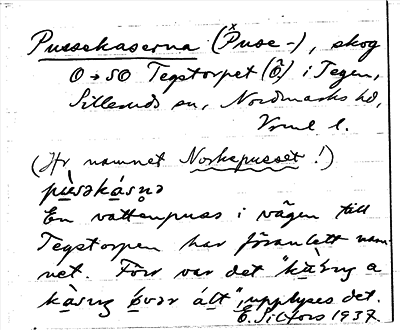 Pussekaserna (P̆use-), skog
O→SO Tegstorpet (Ö) i Tegen,
Silleruds sn, Nordmarks hd,
Vrml. l.
(Av namnet Norkepusset!)
pùsəkásṇə
En vattenpuss i vägen till
Tegstorpen har föranlett nam-
net. Förr var det "kàsṇ a
kàsṇ över ált", upplyses det.
E. Silfors 1937.